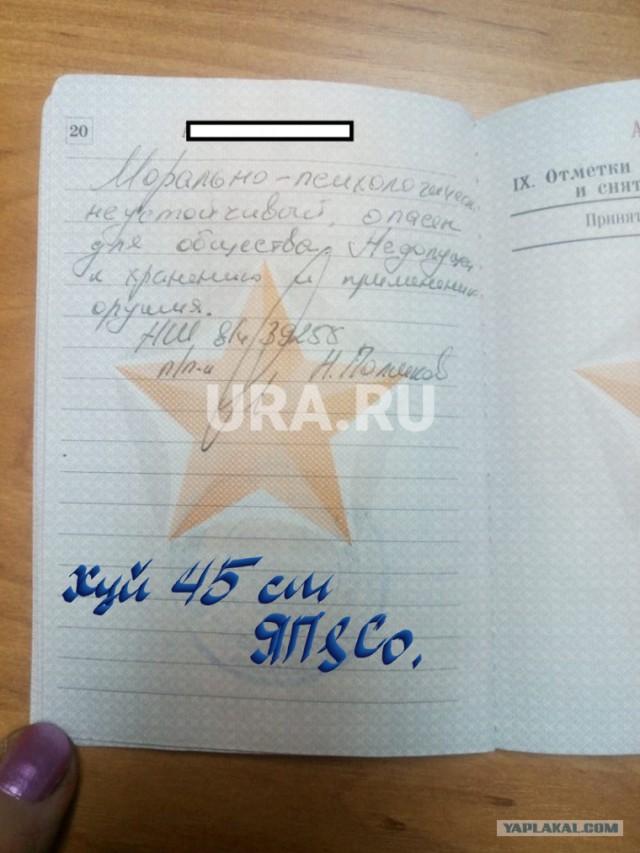 20
Морально-психологичес.
неустойчивый, опасен
для общества. Недопущен
к хранению и применению
оружия.
НШ в/ч 39255
п/п-к Н. Поляков
URA.RU
хуй 45 см
ЯП&Со.
IX. Отметки
и снят
Принят
YAPLAKAL.COM